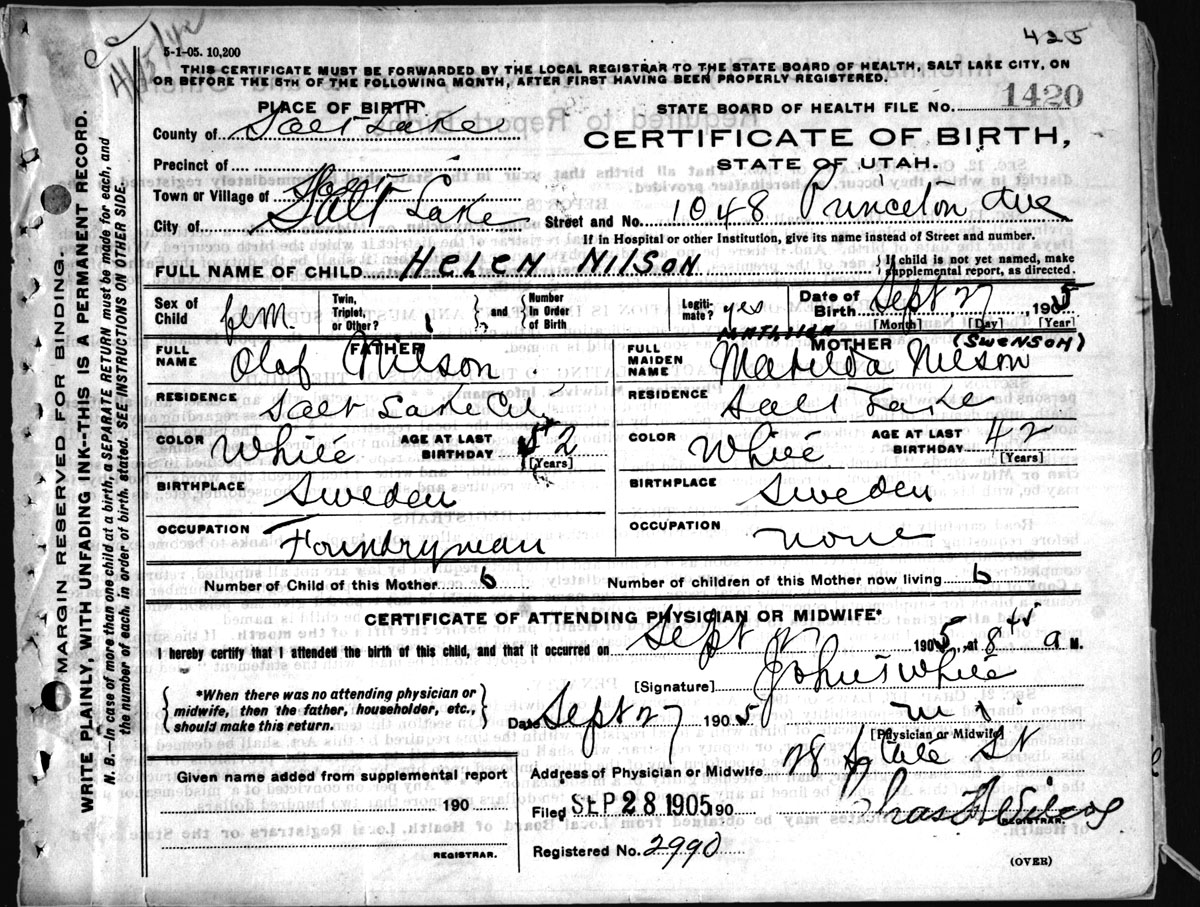 425
5-1-05. 10,200
THIS CERTIFICATE MUST BE FORWARDED BY THE LOCAL REGISTRAR TO THE STATE BOARD OF HEALTH, SALT LAKE CITY, ON
OR BEFORE THE 5TH OF THE FOLLOWING MONTH, AFTER FIRST HAVING BEEN PROPERLY REGISTERED.
PLACE OF BIRTH
STATE BOARD OF HEALTH FILE No. 1420
County of Salt Lake
CERTIFICATE OF BIRTH,
Precinct of
STATE OF UTAH.
Town or Village of
City of Salt Lake Street and No. 1048 Princeton Ave
If in Hospital or other Institution, give its name instead of Street and number.
FULL NAME OF CHILD HELEN NILSON { If child is not yet named, make supplemental report, as directed.
Sex of Child fem. Twin, Triplet, or Other? 1 } and { Number In Order of Birth Legitimate? yes Date of Birth Sept 27, 1905
[Month] [Day] [Year]
FATHER
MOTHER (SWENSON)
FULL NAME Olof Nilson
FULL MAIDEN NAME Matilda Nilson
RESIDENCE Salt Lake Ci.
RESIDENCE Salt Lake
COLOR White AGE AT LAST BIRTHDAY 52 [Years]
COLOR White AGE AT LAST BIRTHDAY 42 [Years]
BIRTHPLACE Sweden
BIRTHPLACE Sweden
OCCUPATION Foundryman
OCCUPATION none
Number of Child of this Mother 6 Number of children of this Mother now living 6
CERTIFICATE OF ATTENDING PHYSICIAN OR MIDWIFE*
I hereby certify that I attended the birth of this child, and that it occurred on Sept 27 1905, at 8 45 a M.
*When there was no attending physician or midwife, then the father, householder, etc., should make this return.
[Signature] John S White
Date Sept 27 1905 M D.
[Physician or Midwife]
Address of Physician or Midwife 78 State St
Given name added from supplemental report
190
REGISTRAR.
Filed SEP 28 1905 190
REGISTRAR.
Registered No. 2990
(OVER)
MARGIN RESERVED FOR BINDING.
WRITE PLAINLY, WITH UNFADING INK--THIS IS A PERMANENT RECORD.
N. B.--In case of more than one child at a birth, a SEPARATE RETURN must be made for each, and
the number of each, in order of birth, stated. SEE INSTRUCTIONS ON OTHER SIDE.